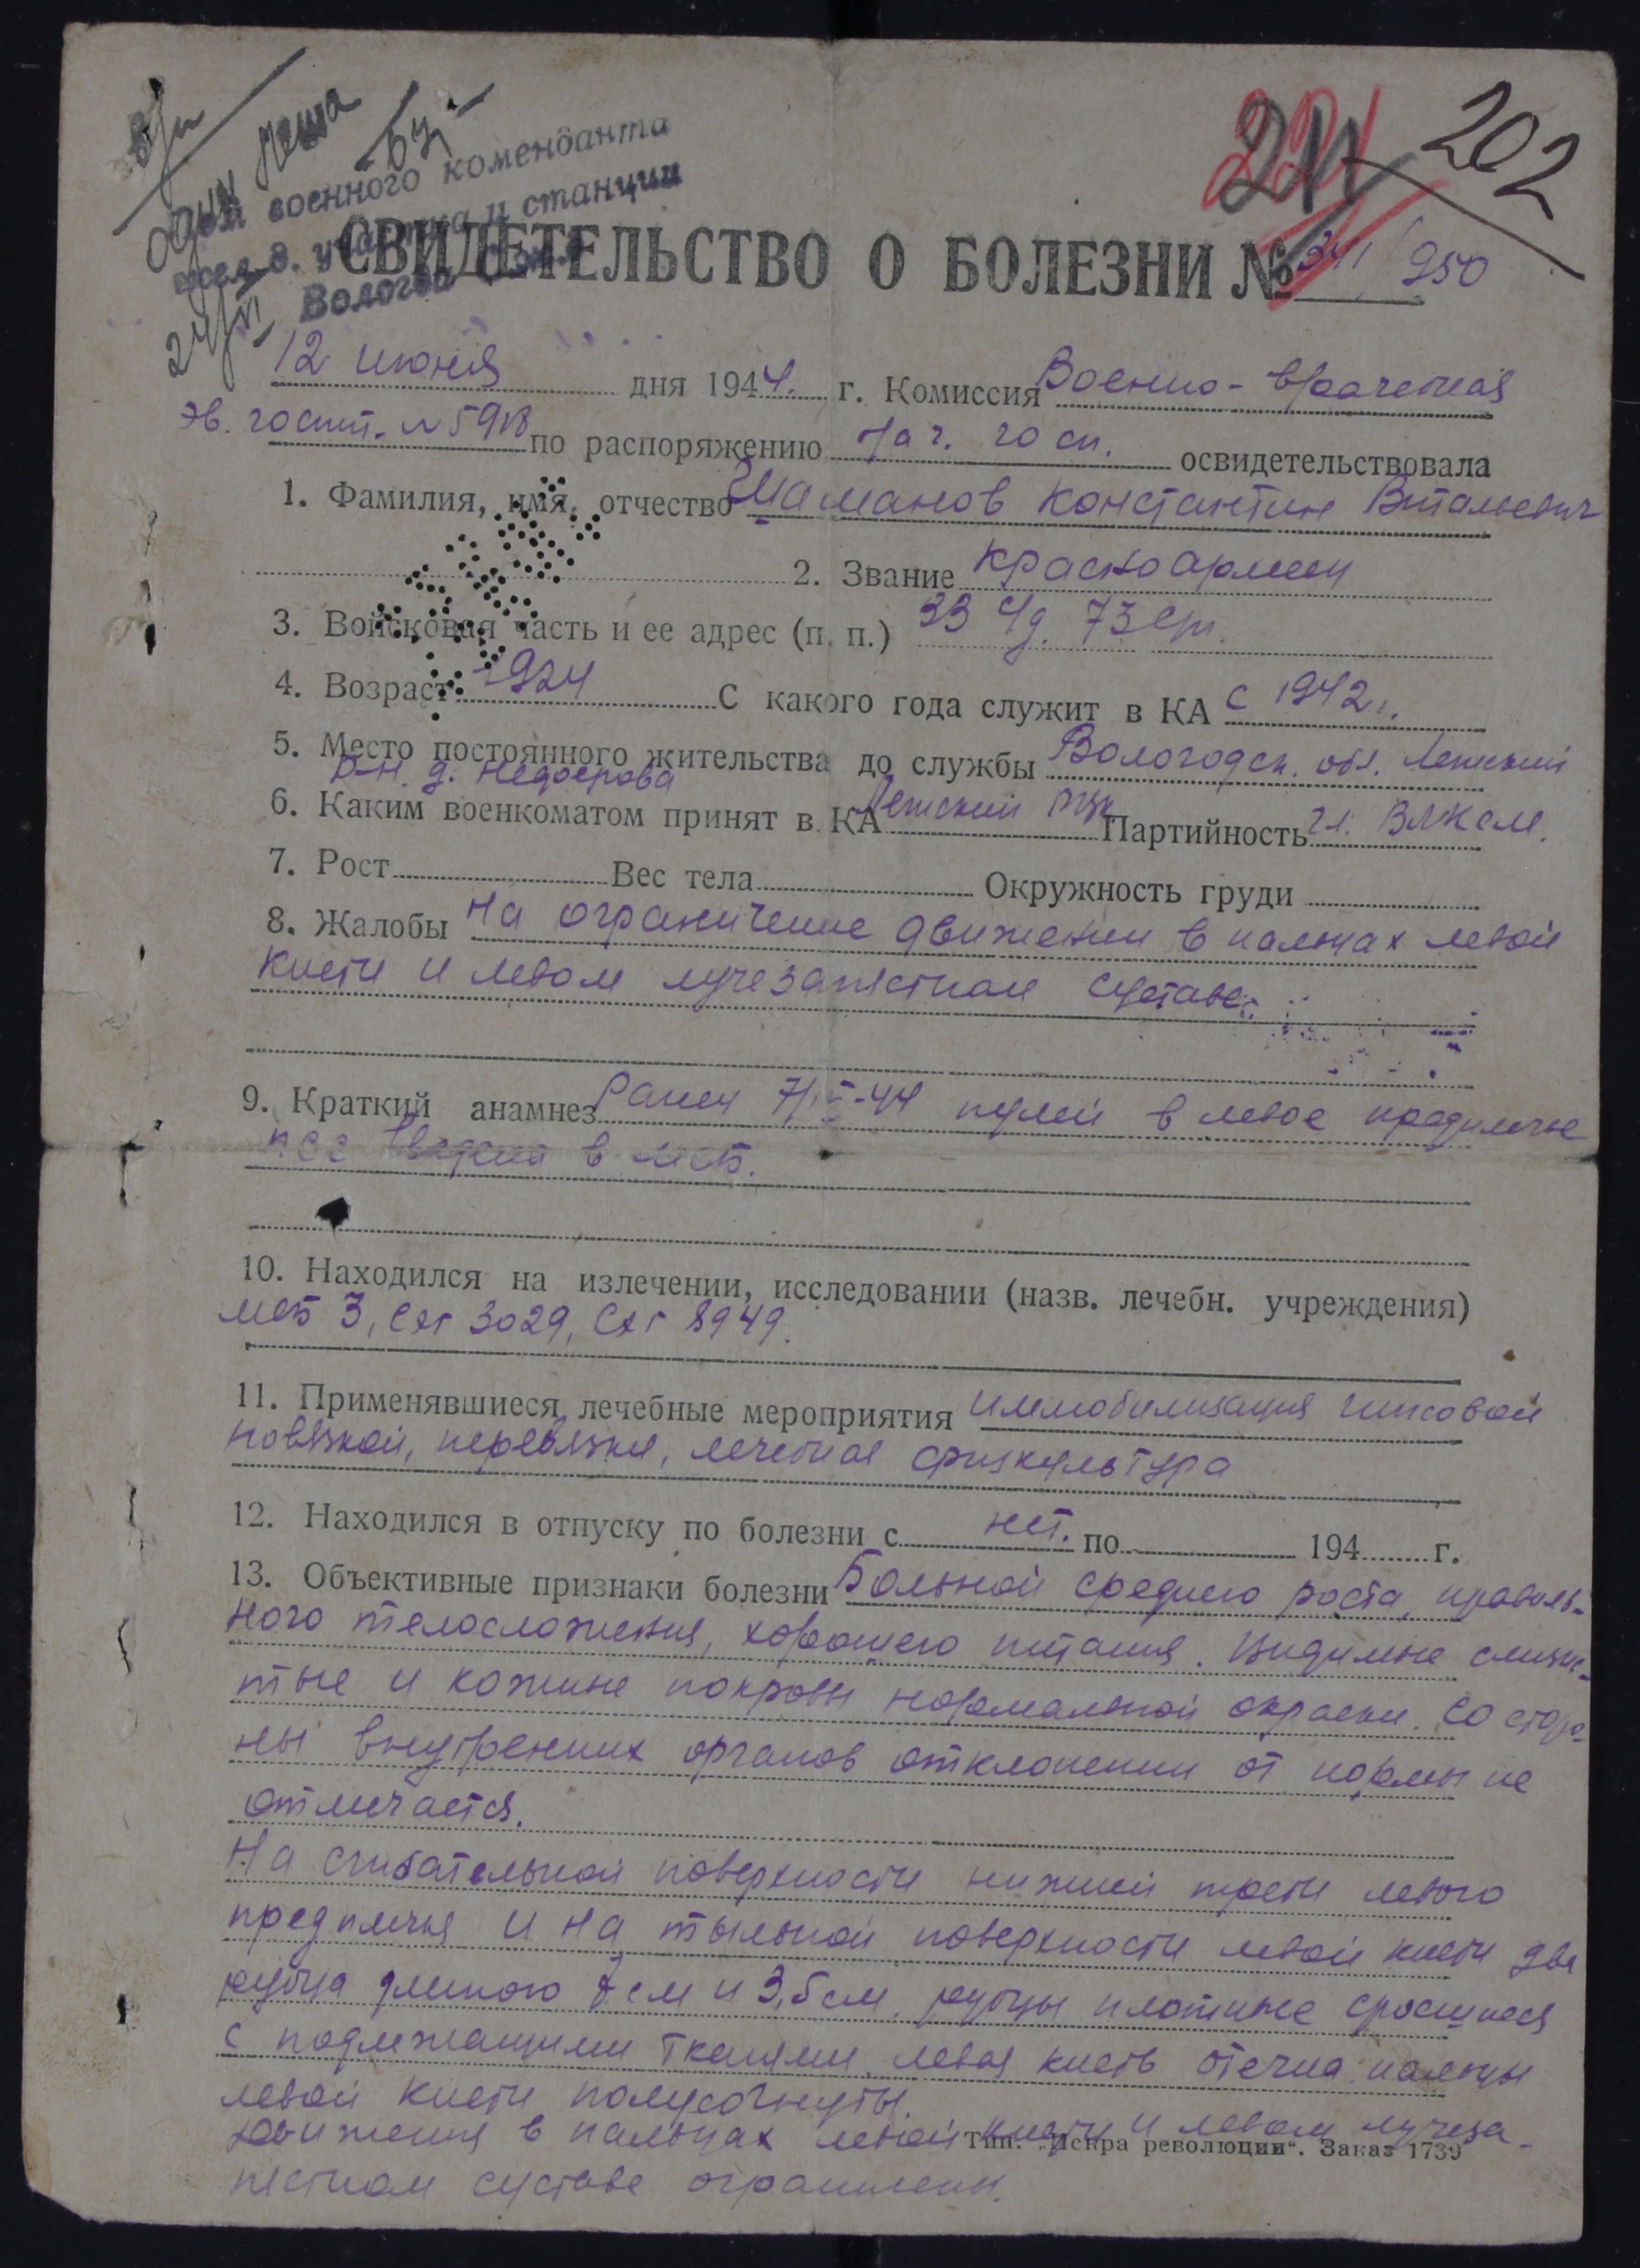 202
военного коменданта
жел. д. участка и станции
Вологда
СВИДЕТЕЛЬСТВО О БОЛЕЗНИ № 341/950
12 июня дня 1944. г. Комиссия Военно-врачебная
эв. госпит. № 5918 по распоряжению нач. госп. освидетельствовала
1. Фамилия, имя, отчество Шаманов Константин Витальевич
2. Звание красноармеец
3. Войсковая часть и ее адрес (п. п.) 33 сд. 73 сп.
4. Возраст 1924 С какого года служит в КА с 1942 г.
5. Место постоянного жительства до службы Вологодск. обл. Летский
р-н. д.
6. Каким военкоматом принят в КА Летский РВК Партийность чл. ВЛКСМ.
7. Рост Вес тела Окружность груди
8. Жалобы на ограничение движении в пальцах левой
кисти и левом лучезапястном суставе.
9. Краткий анамнез Ранен пулей в левое предплечье
в
10. Находился на излечении, исследовании (назв. лечебн. учреждения)
МСБ 3, СЭГ 3029, СЭГ 8949.
11. Применявшиеся лечебные мероприятия иммобилизация гипсовой
повязкой, перевязки, лечебная физкультура
12. Находился в отпуску по болезни с нет. по 194 г.
13. Объективные признаки болезни Больной среднего роста, правиль-
ного телосложения, хорошего питания. Видимые слизис-
тые и кожные покровы нормальной окраски. Со сторо-
ны внутренних органов отклонении от нормы не
отмечается.
На сгибательной поверхности нижней трети левого
предплечья и на тыльной поверхности левой кисти два
рубца длиною 7 см и 3,5 см. рубцы плотные сросшиеся
с подлежащими тканями. левая кисть отечна пальцы
левой кисти полусогнуты.
Движения в пальцах левой кисти и левом лучеза-
Тип. „Искра революции“. Заказ 1739
пястном суставе ограничены.